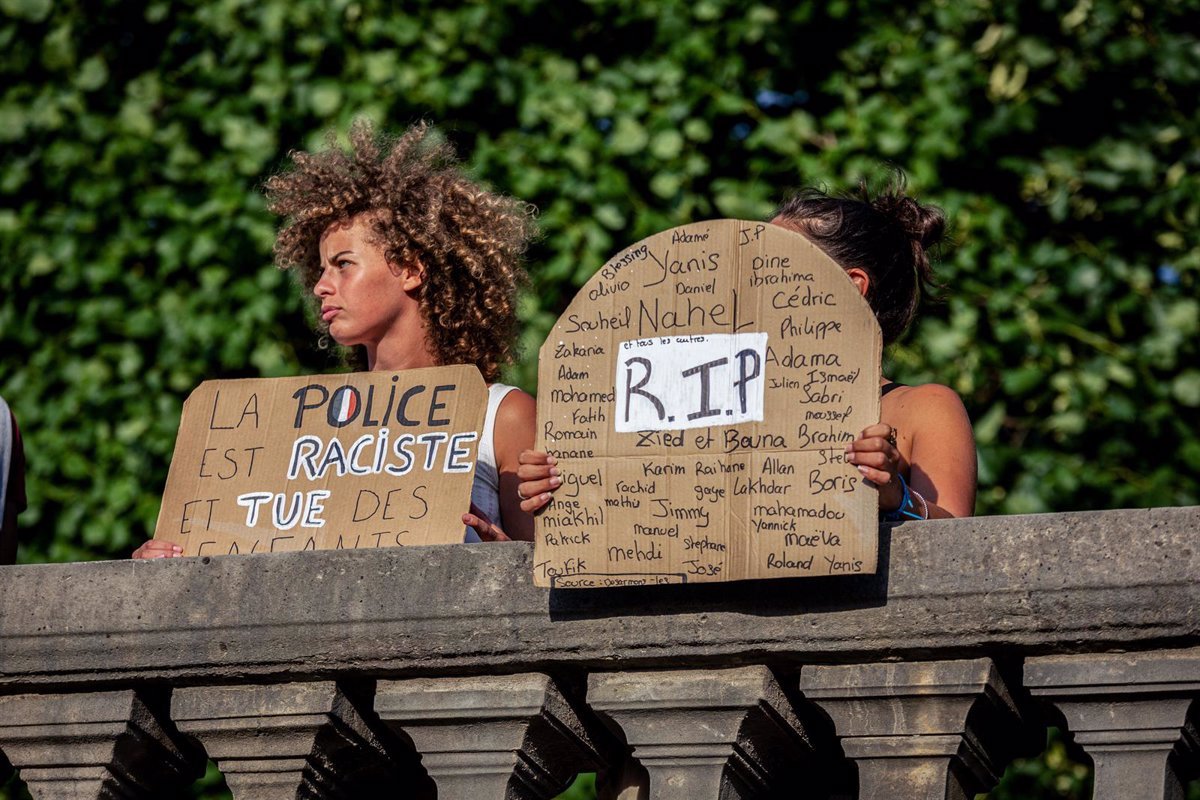 LA POLICE
EST RACISTE
ET TUE DES
ENFANTS
Adamé J.P
Blessing Yanis Dine
olivio Daniel ibrahima
Souheil Nahel Cédric
et tous les autres.
Philippe
Zakaria R.I.P Adama
Adam Julien Ismaël
mohamed Sabri
Fatih
Romain Zied et Bouna Brahim
Karim Raihane Allan
rachid gaye Lakhdar Boris
Ange mathis Jimmy mahamadou
miakhil Yannick
Patrick manuel Maëva
mehdi stephane
Toufik José Roland Yanis
Source : Desarmons-les